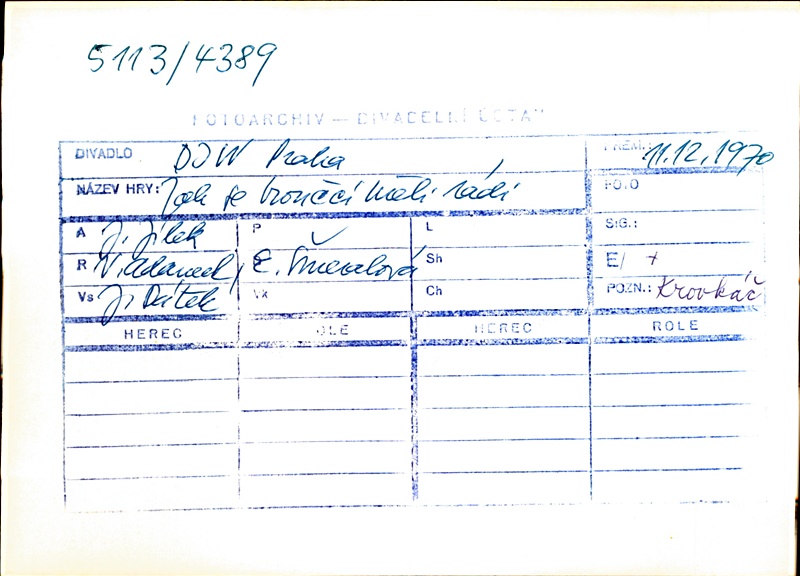 5113/4389
FOTOARCHIV — DIVADELNÍ ÚSTAV
DIVADLO DJW Praha
PREM.: 11.12.1970
NÁZEV HRY: Jak se broučci měli rádi
FO.O
SIG.:
A J. Jílek P L
R V. Adámek, E. Šmeralová Sh E/ +
Vs J. Dátek Vk Ch POZN.: Krovkáč
HEREC ROLE HEREC ROLE